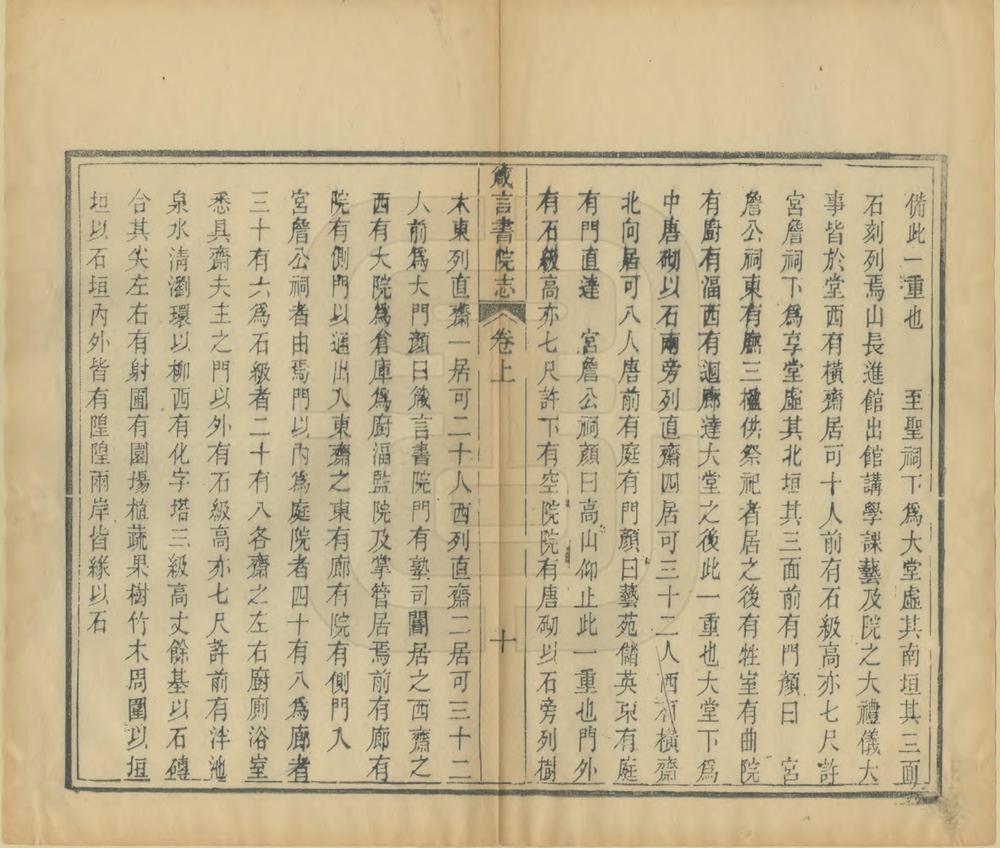 備此一重也　　至聖祠下爲大堂虛其南垣其三面
石刻列焉山長進館出館講學課藝及院之大禮儀大
事皆於堂西有橫齋居可十人前有石級高亦七尺許
宮詹祠下爲享堂虛其北垣其三面前有門顏曰　宮
詹公祠東有廊三楹供祭祀者居之後有牲室有曲院
有廚有湢西有迴廊達大堂之後此一重也大堂下爲
中唐砌以石兩旁列直齋四居可三十二人西有橫齋
北向居可八人唐前有庭有門顏曰藝苑儲英東有庭
有門直達　宮詹公祠顏曰高山仰止此一重也門外
有石級高亦七尺許下有空院院有唐砌以石旁列樹
箴言書院志　卷上　十
木東列直齋一居可二十人西列直齋二居可三十二
人前爲大門顏曰箴言書院門有塾司閽居之西齋之
西有大院爲倉庫爲廚湢監院及掌管居焉前有廊有
院有側門以通出入東齋之東有廊有院有側門入
宮詹公祠者由焉門以內爲庭院者四十有八爲廊者
三十有六爲石級者二十有八各齋之左右廚廁浴室
悉具齋夫主之門以外有石級高亦七尺許前有泮池
泉水清瀏環以柳西有化字塔三級高丈餘基以石磚
合其尖左右有射圃有園場植蔬果樹竹木周圍以垣
垣以石垣內外皆有隍隍兩岸皆緣以石